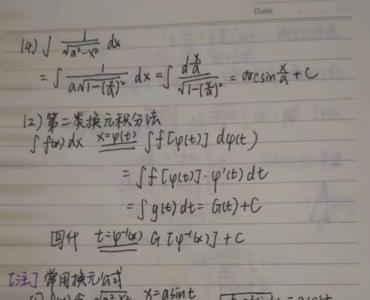 Date
(4) ∫ 1/√(a²-x²) dx
= ∫ 1/(a√(1-(x/a)²)) dx = ∫ d(x/a)/√(1-(x/a)²) = arcsin x/a + C
(2) 第二类换元积分法
∫ f(x) dx x=φ(t) ∫ f[φ(t)] dφ(t)
= ∫ f[φ(t)]·φ'(t) dt
= ∫ g(t) dt = G(t) + C
回代 t=φ⁻¹(x) G[φ⁻¹(x)] + C
[注] 常用换元公式
x=asint